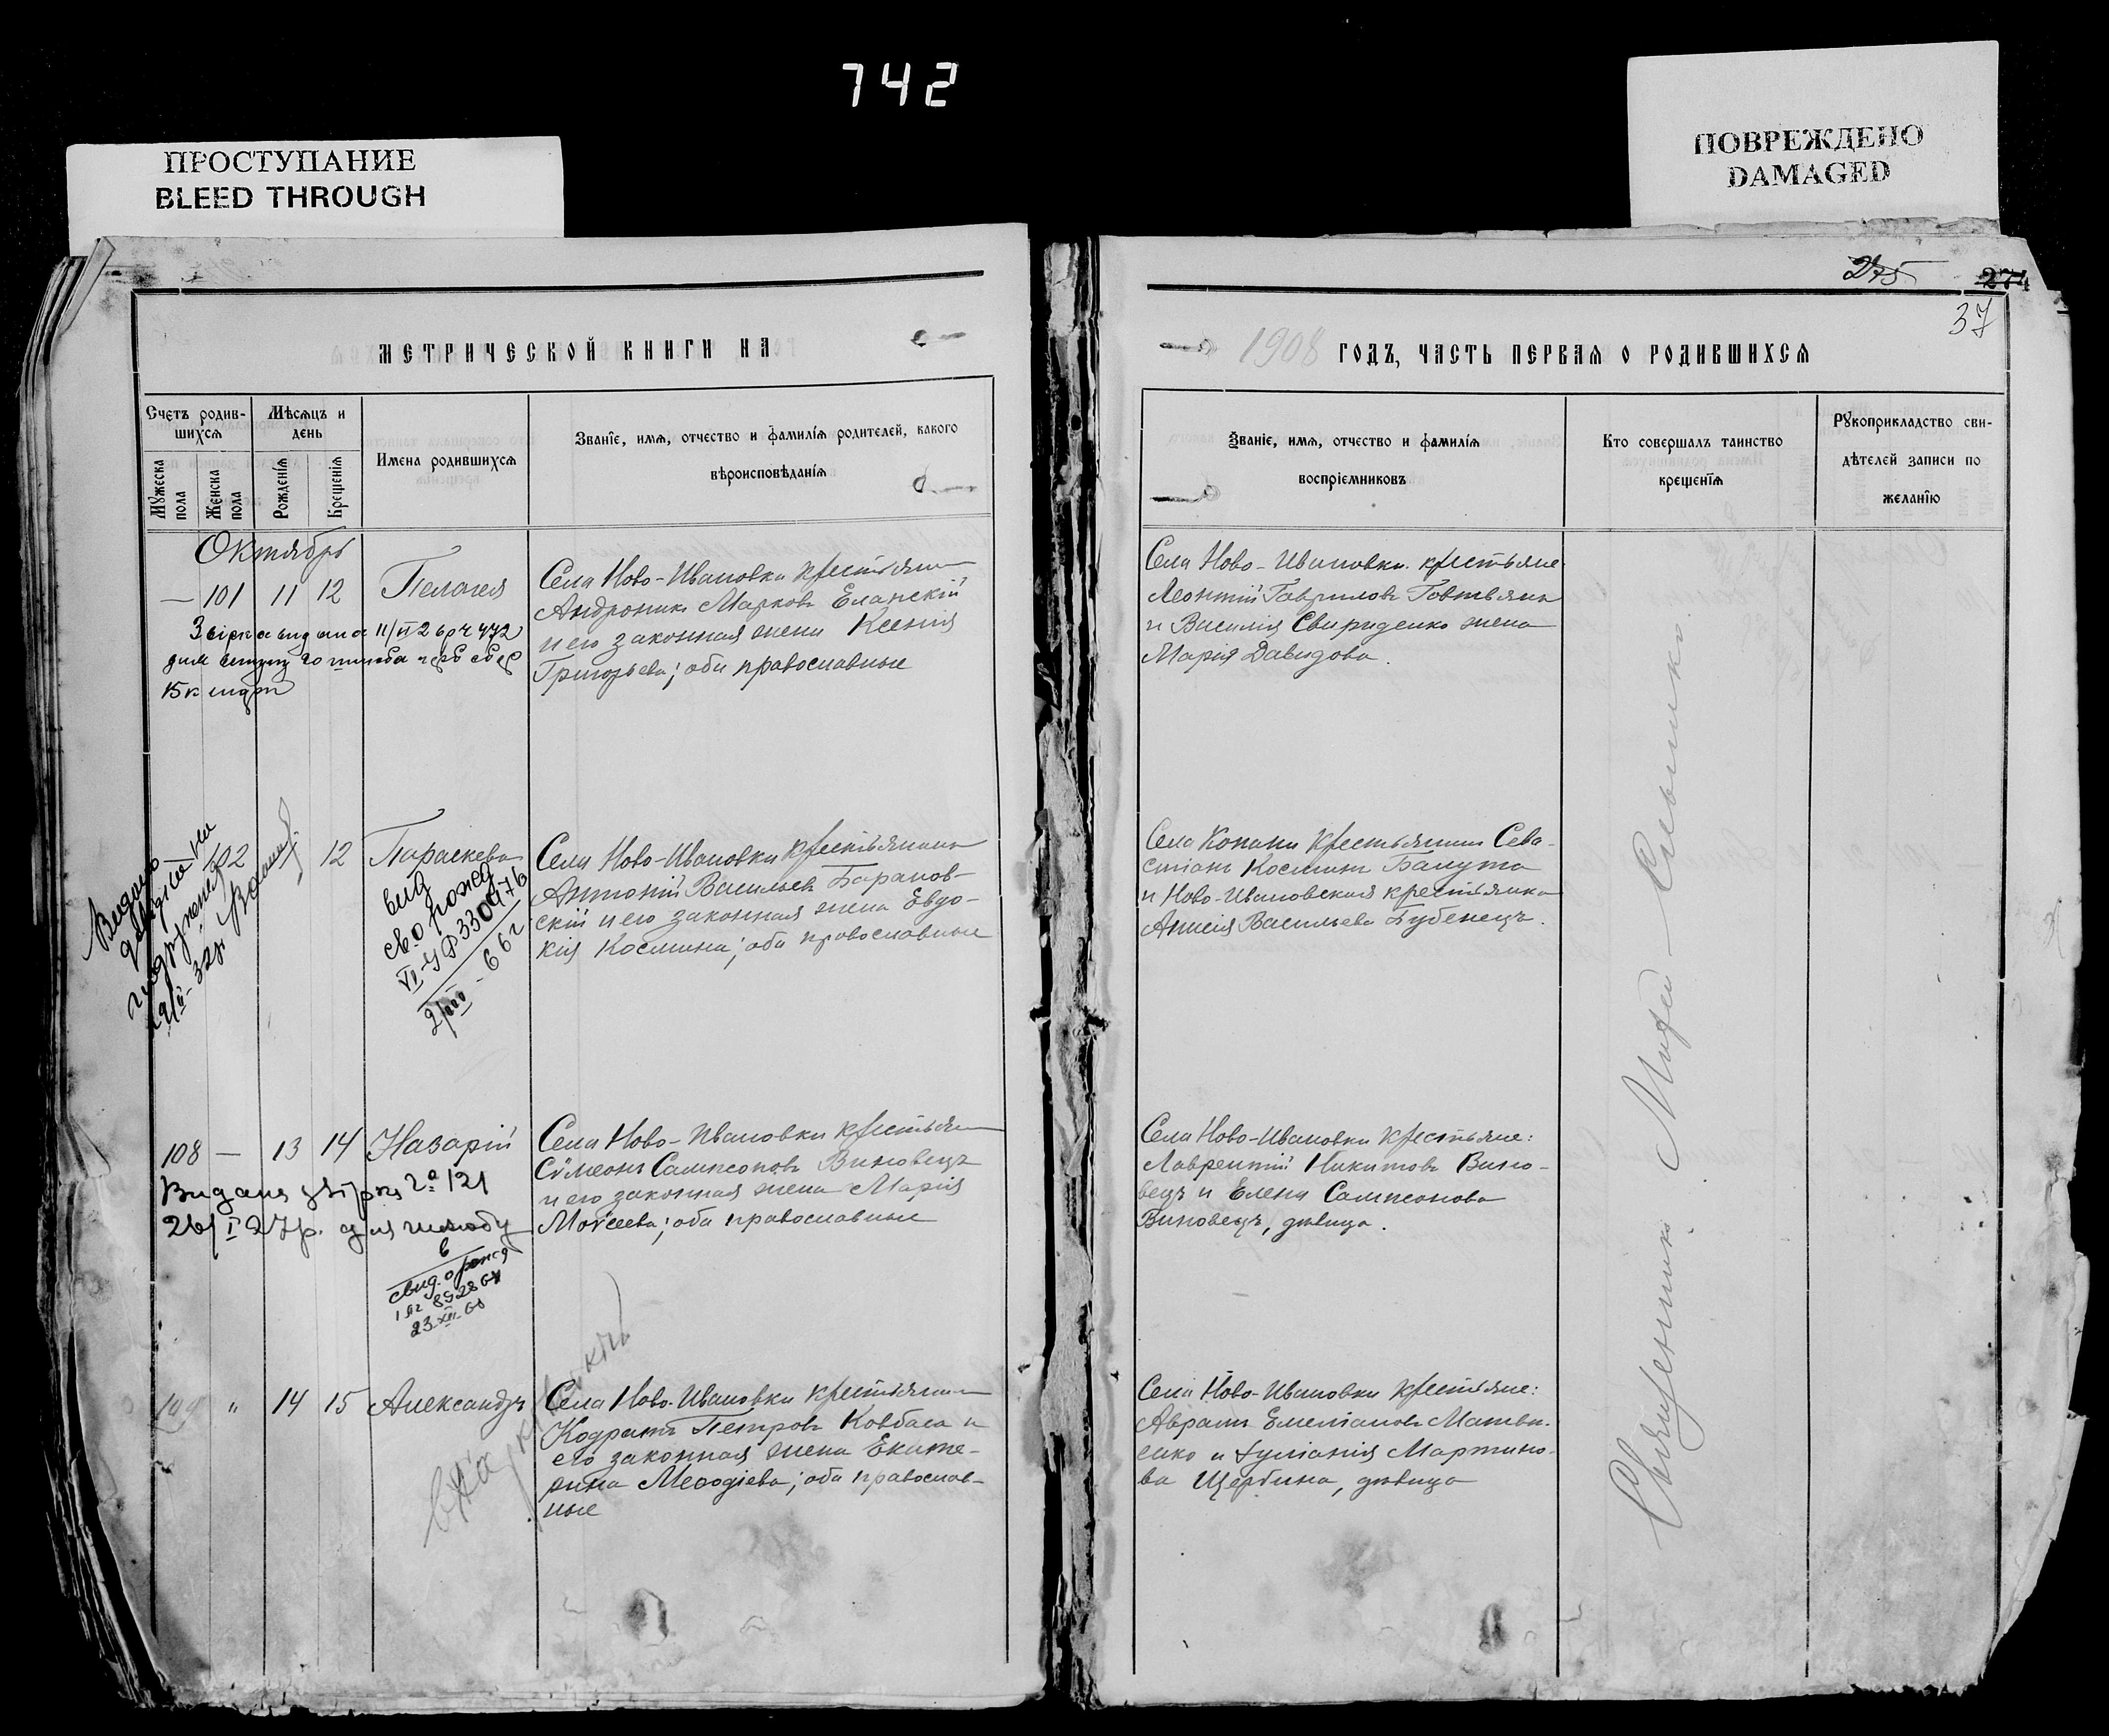 742
ПРОСТУПАНИЕ
BLEED THROUGH
ПОВРЕЖДЕНО
DAMAGED
275
274
37
МЕТРИЧЕСКОЙ КНИГИ НА
1908 ГОДЪ, ЧАСТЬ ПЕРВАЯ О РОДИВШИХСЯ
Счетъ родив-
шихся
Мѣсяцъ и
день
Мужеска
пола
Женска
пола
Рожденія
Крещенія
Имена родившихся
Званіе, имя, отчество и фамилія родителей, какого
вѣроисповѣданія
Званіе, имя, отчество и фамилія
воспріемниковъ
Кто совершалъ таинство
крещенія
Рукоприкладство сви-
дѣтелей записи по
желанію
Октябрь
— 101 11 12 Пелагея
Села Ново-Ивановки крестьянинъ
Андроникъ Марковъ Еланскій
и его законная жена Ксенія
Григорьева; оба православные
Села Ново-Ивановки крестьяне
Леонтій Гавриловъ Говтвянъ
и Василія Свириденко жена
Марія Давидова.
102 12 Параскева
вид
св. о рожд
VI-УР 330976
2/VIII-66 г
Села Ново-Ивановки крестьянинъ
Антоній Васильевъ Баранов-
скій и его законная жена Евдо-
кія Космина; оба православные
Села Копани крестьянинъ Сева-
стіанъ Косминъ Балута
и Ново-Ивановская крестьянка
Анисія Васильева Бубенецъ.
108 — 13 14 Назарій
Видана звірка № 121
26/I 27р. для шлюбу
свид. о рожд
23 XII
Села Ново-Ивановки крестьянинъ
Сѵмеонъ Сампсоновъ Виновецъ
и его законная жена Марія
Моѵсеева; оба православные
Села Ново-Ивановки крестьяне:
Лаврентій Никитовъ Вино-
вецъ и Елена Сампсонова
Виновецъ, дѣвица.
109 " 14 15 Александръ
Села Ново-Ивановки крестьянинъ
Кодратъ Петровъ Ковбаса и
его законная жена Екате-
рина Меѳодіева; оба православ-
ные
Села Ново-Ивановки крестьяне:
Авраамъ Емеліановъ Матви-
енко и Іуліанія Мартино-
ва Щербина, дѣвица
Священникъ